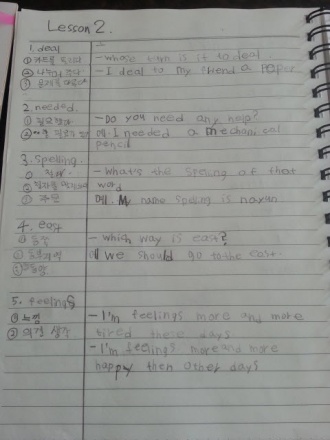 Lesson 2.
1. deal
① 카드를 돌리다 - whose turn is it to deal
② 나누어 주다 - I deal to my friend a paper
③
2. needed
① 필요했다 - Do you need any help?
② 예. I needed a mechanical
pencil
3. spelling
① 철자 - What's the spelling of that
② word
③ 예. My name spelling is nayun
4. east
① 동쪽 - which way is east?
② 예 we should go to the east.
③
5. feelings
① 느낌 - I'm feelings more and more
② 의견 생각 tired these days
- I'm feelings more and more
happy then other days